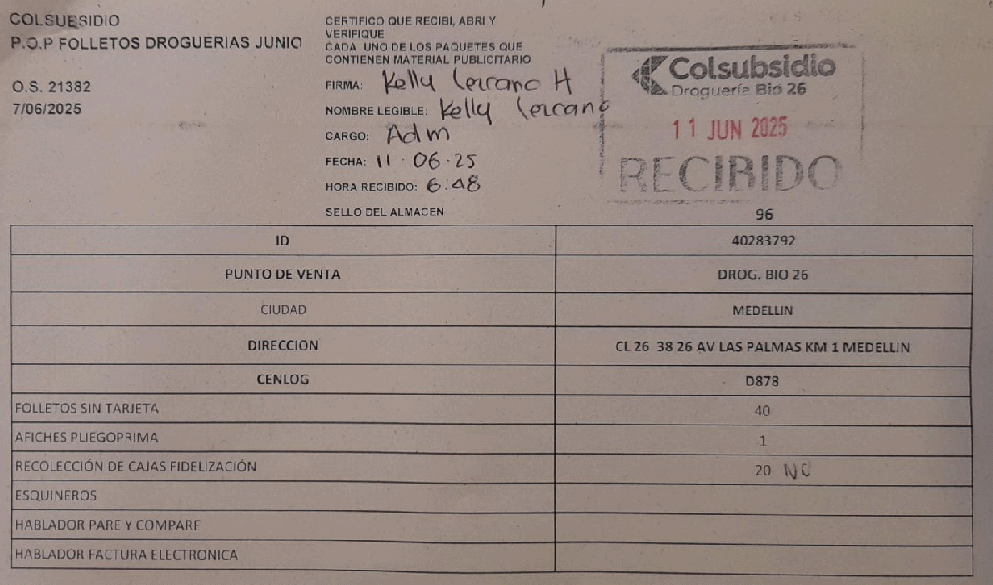 COLSUBSIDIO
P.O.P FOLLETOS DROGUERIAS JUNIO
O.S. 21382
7/06/2025
CERTIFICO QUE RECIBI, ABRI Y
VERIFIQUE
CADA UNO DE LOS PAQUETES QUE
CONTIENEN MATERIAL PUBLICITARIO
FIRMA: Kelly Lezcano H
NOMBRE LEGIBLE: Kelly Lezcano
CARGO: Adm
FECHA: 11·06·25
HORA RECIBIDO: 6:48
SELLO DEL ALMACEN
Colsubsidio
Droguería Bio 26
11 JUN 2025
RECIBIDO
96
ID 40283792
PUNTO DE VENTA DROG. BIO 26
CIUDAD MEDELLIN
DIRECCION CL 26 38 26 AV LAS PALMAS KM 1 MEDELLIN
CENLOG D878
FOLLETOS SIN TARJETA 40
AFICHES PLIEGOPRIMA 1
RECOLECCIÓN DE CAJAS FIDELIZACIÓN 20 NO
ESQUINEROS
HABLADOR PARE Y COMPARE
HABLADOR FACTURA ELECTRONICA